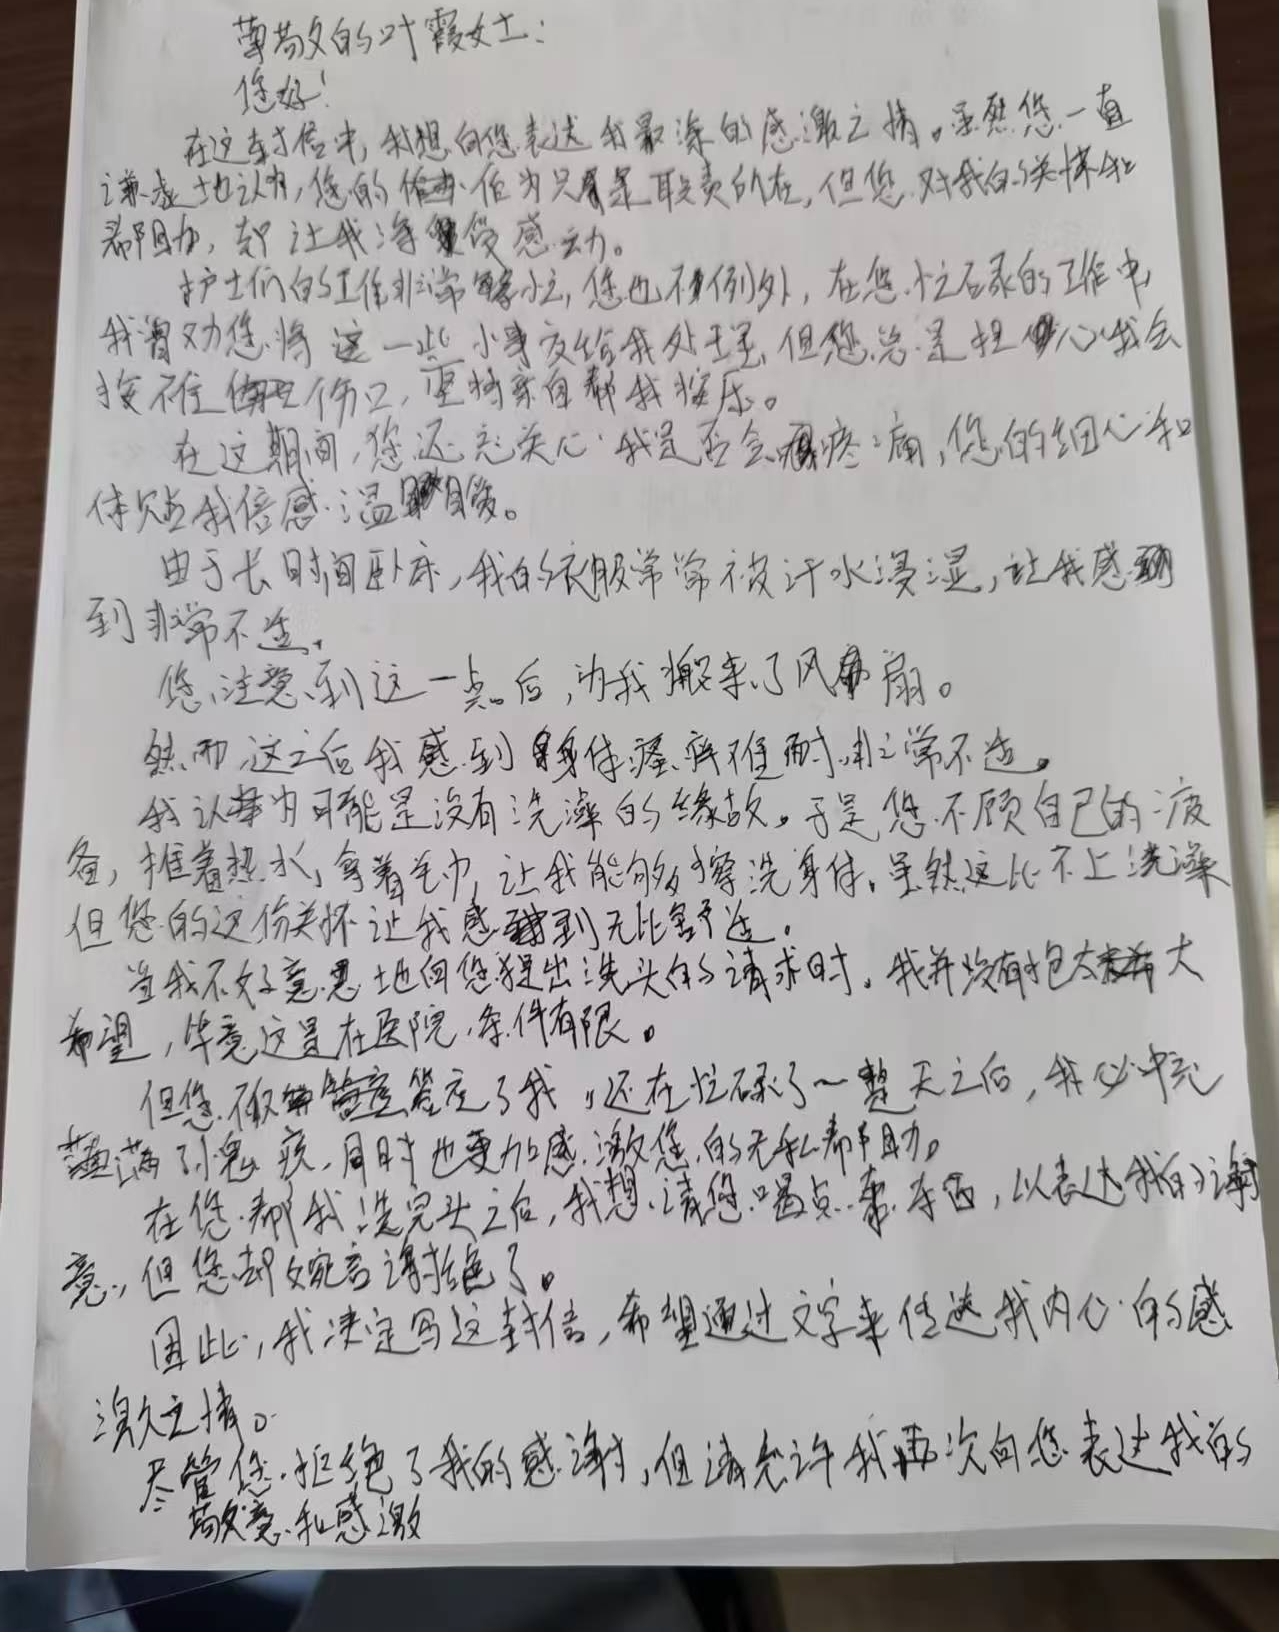 尊敬的叶霞女士：
您好！
在这封信中，我想向您表达我最深的感激之情。虽然您一直
谦虚地认为，您的作为只是职责所在，但您对我的关怀和
帮助，却让我深受感动。
护士们的工作非常繁忙，您也不例外，在您忙碌的工作中，
我曾劝您将这一些小事交给我处理，但您总是担心我会
按不住伤口，坚持亲自帮我按压。
在这期间，您还总关心我是否会疼痛，您的细心和
体贴我倍感温暖。
由于长时间卧床，我的衣服常常被汗水浸湿，让我感
到非常不适。
您注意到这一点后，为我搬来了风扇。
然而，这之后我感到身体瘙痒难耐，非常不适。
我认为可能是没有洗澡的缘故。于是您不顾自己的疲
备，推着热水，拿着毛巾，让我能够擦洗身体。虽然这比不上洗澡
但您的这份关怀让我感到无比舒适。
当我不好意思地向您提出洗头的请求时，我并没有抱太大
希望，毕竟这是在医院，条件有限。
但您不仅答应了我，还在忙碌了一整天之后，我心中充
满了愧疚，同时也更加感激您的无私帮助。
在您帮我洗完头之后，我想请您喝点东西，以表达我的谢
意，但您却婉言谢绝了。
因此，我决定写这封信，希望通过文字来传达我内心的感
激之情。
尽管您拒绝了我的感谢，但请允许我再次向您表达我的
敬意和感激